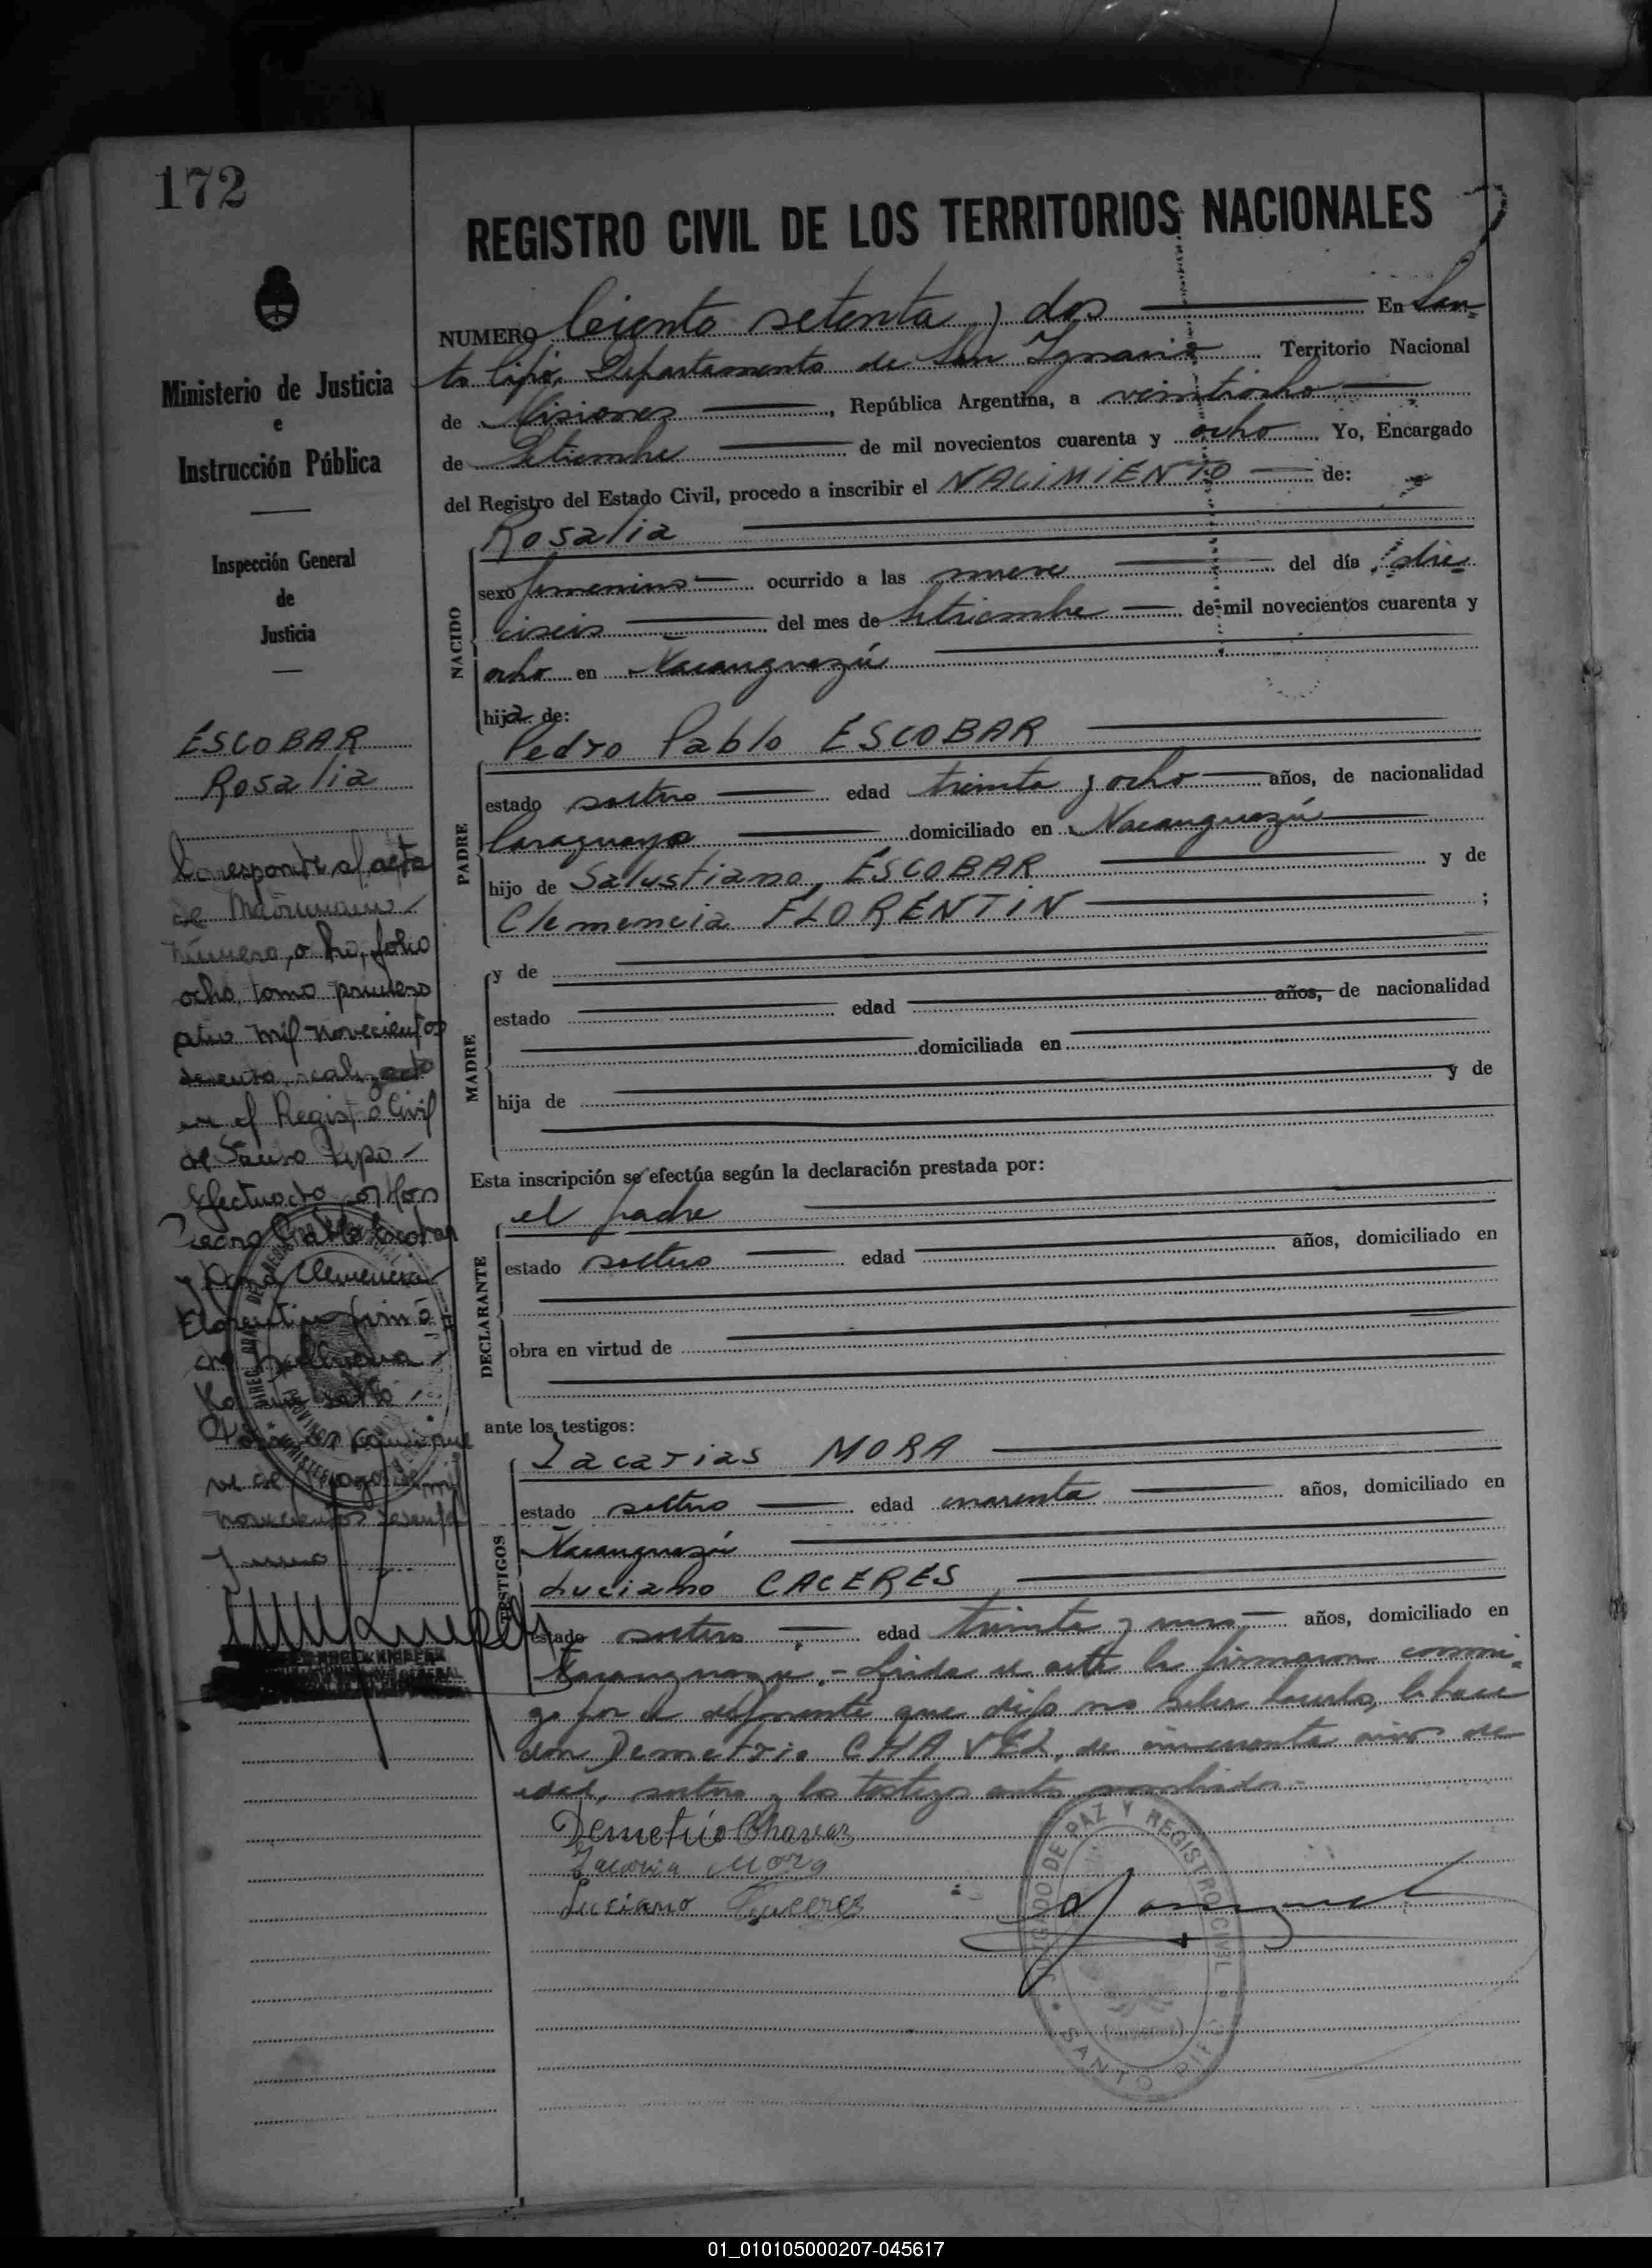 172
REGISTRO CIVIL DE LOS TERRITORIOS NACIONALES
Ministerio de Justicia
e
Instrucción Pública
Inspección General
de
Justicia
NUMERO Ciento setenta y dos En San=
to Pipó, Departamento de San Ignacio Territorio Nacional
de Misiones, República Argentina, a veintiocho
de Setiembre de mil novecientos cuarenta y ocho Yo, Encargado
del Registro del Estado Civil, procedo a inscribir el NACIMIENTO de:
NACIDO
Rosalia
sexo femenino ocurrido a las nueve del día die=
ciseis del mes de Setiembre de mil novecientos cuarenta y
ocho en Ñacanguazú
hija de:
PADRE
Pedro Pablo ESCOBAR
estado soltero edad treinta y ocho años, de nacionalidad
Paraguaya domiciliado en Ñacanguazú
hijo de Salustiano ESCOBAR y de
Clemencia FLORENTIN ;
MADRE
y de
estado edad años, de nacionalidad
domiciliada en
hija de y de
Esta inscripción se efectúa según la declaración prestada por:
DECLARANTE
el padre
estado soltero edad años, domiciliado en
obra en virtud de
ante los testigos:
TESTIGOS
Zacarias MORA
estado soltero edad cuarenta años, domiciliado en
Ñacanguazú
Luciano CACERES
estado soltero edad treinta y años, domiciliado en
Ñacanguazú.- Leida el acta la firmaron conmi=
go por el que dijo no saber hacerlo, lo hace
don Demetrio CHAVEZ, de cincuenta años de
edad, soltero y los testigos antes nombrados.-
Demetrio Chavez
Zacaria Mora
Luciano Caceres
JUZGADO DE PAZ Y REGISTRO CIVIL
SANTO PIPO
ESCOBAR
Rosalia
Corresponde al acta
de Matrimonio
número ocho, folio
ocho, tomo primero
año mil novecientos
sesenta, realizado
en el Registro Civil
de Santo Pipo
Efectuado por don
Pedro Pablo Escobar
y Doña Clemencia
Florentin
de
de mil
novecientos sesenta
y uno
01_010105000207-045617